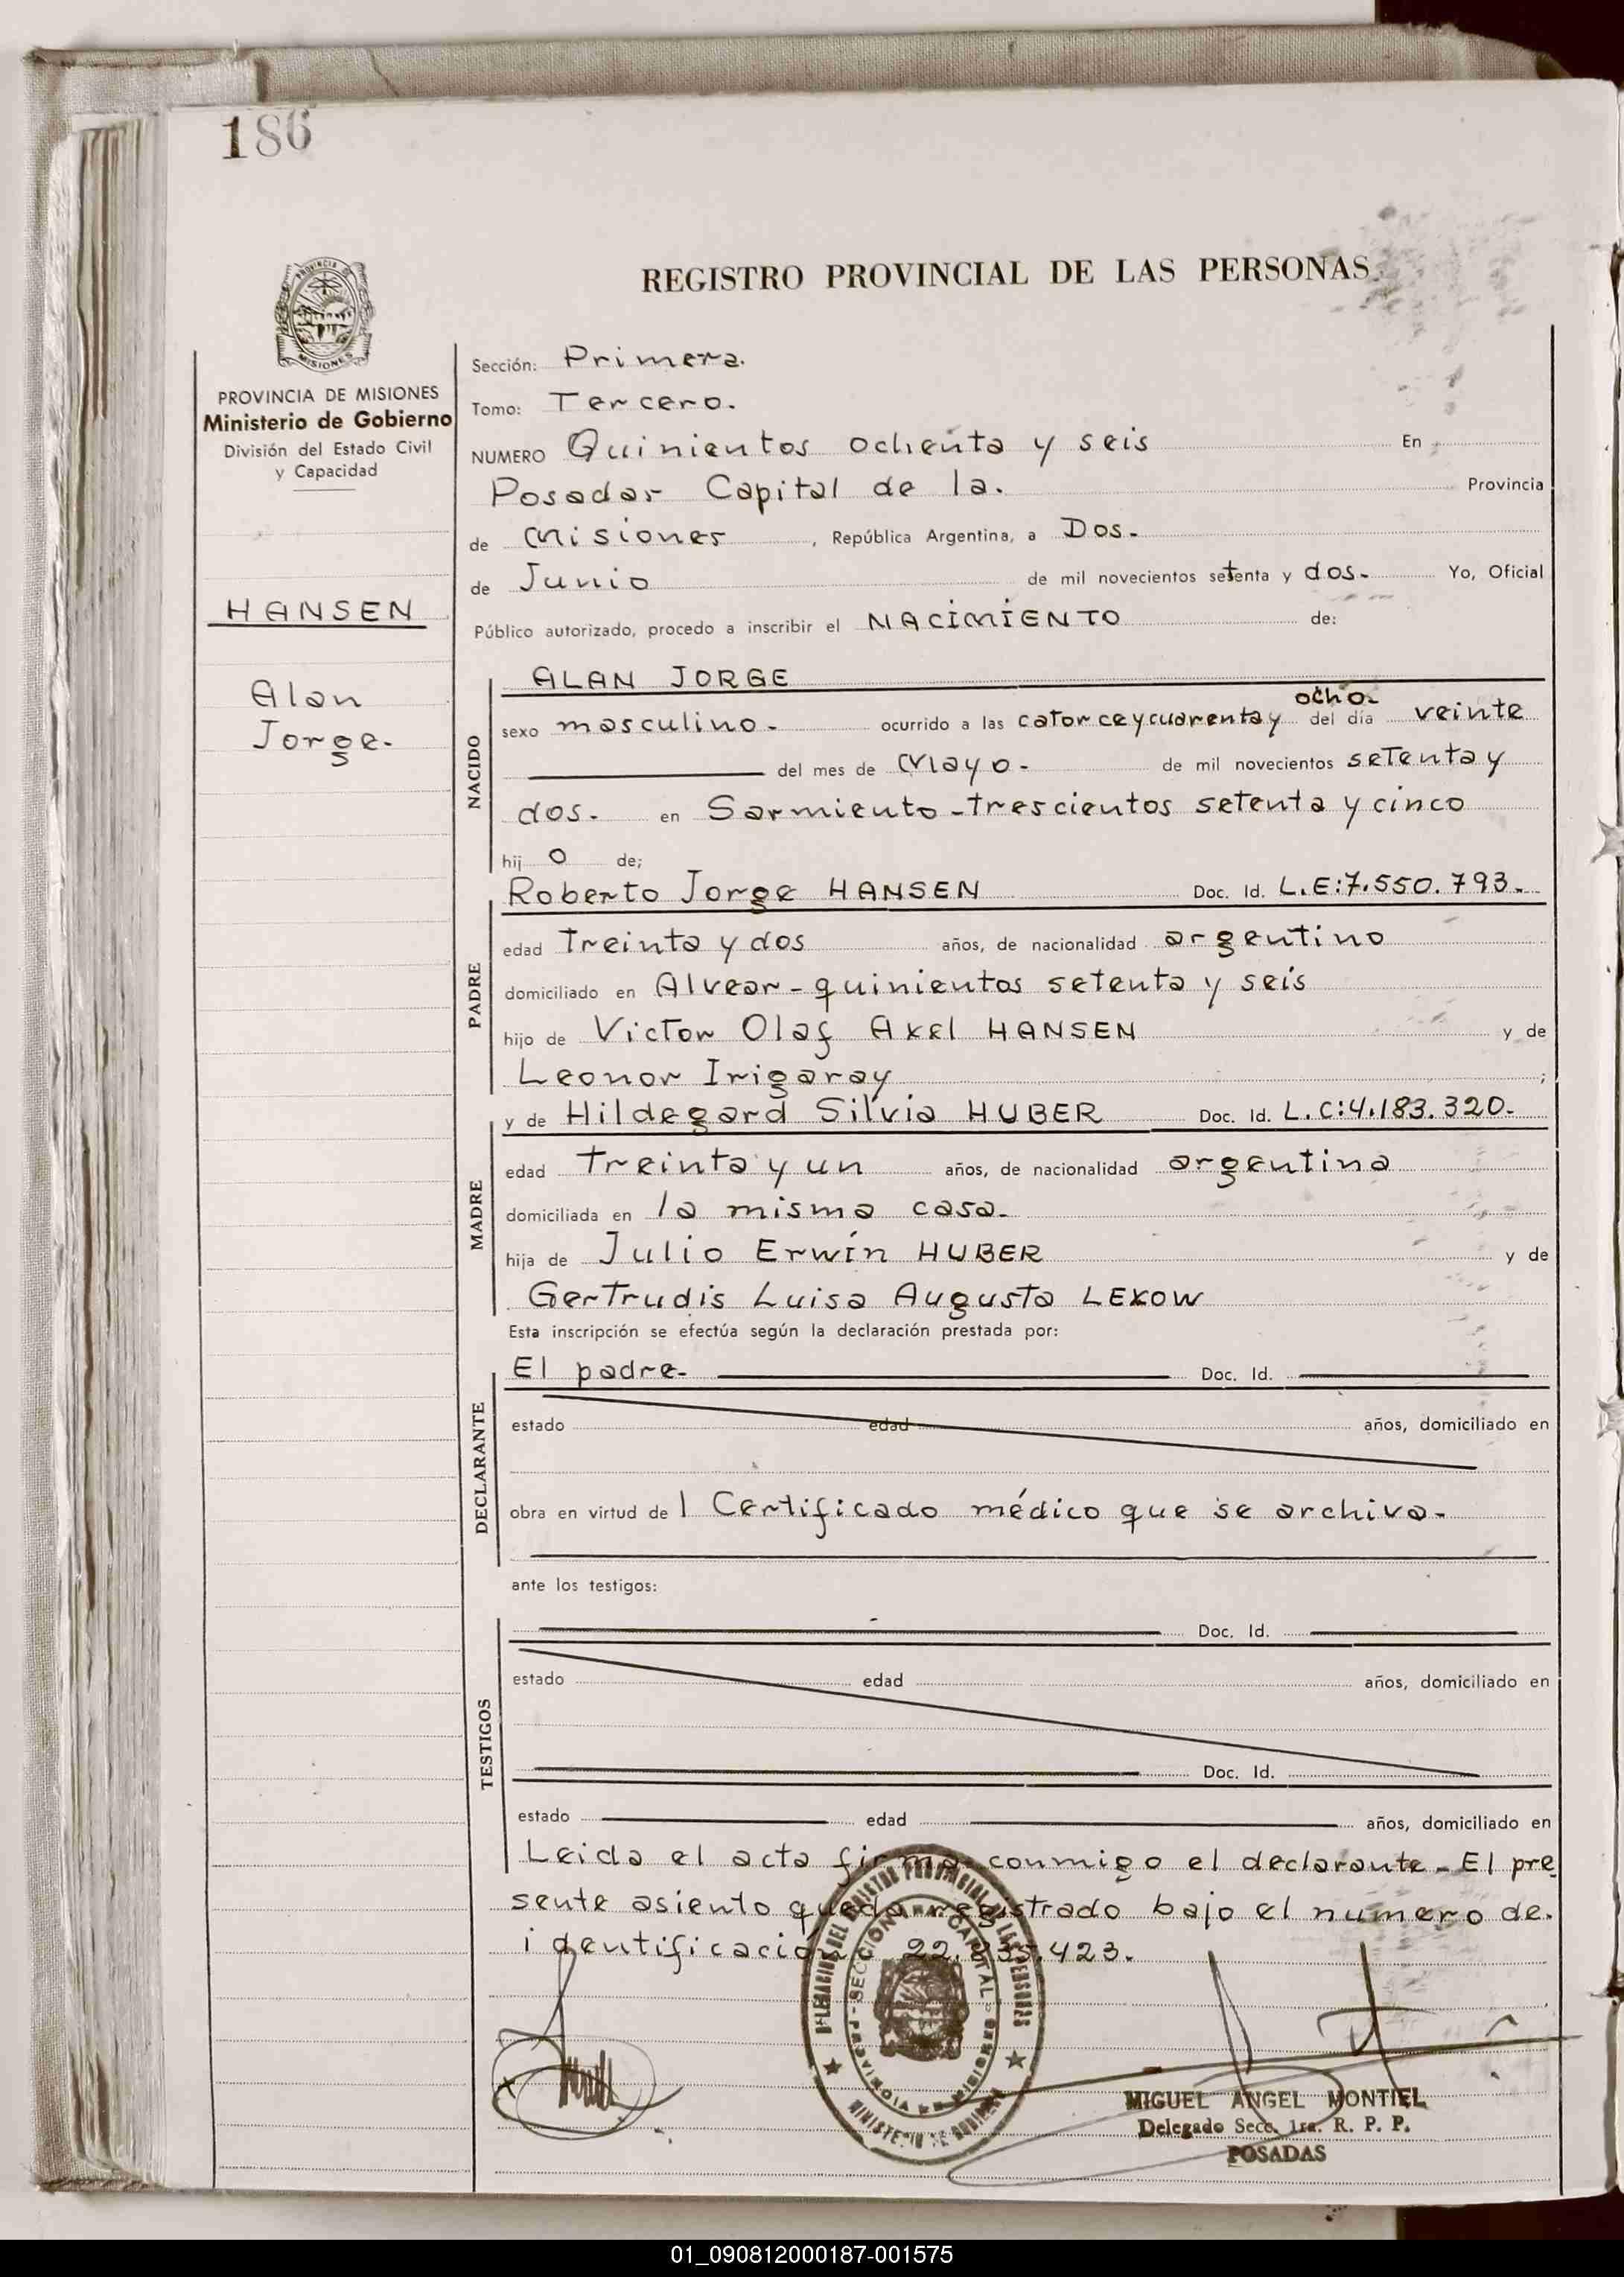 186
PROVINCIA DE
MISIONES
PROVINCIA DE MISIONES
Ministerio de Gobierno
División del Estado Civil
y Capacidad
HANSEN
Alan
Jorge.-
REGISTRO PROVINCIAL DE LAS PERSONAS
Sección: Primera.
Tomo: Tercero.
NUMERO Quinientos ochenta y seis En
Posadas Capital de la. Provincia
de Misiones, República Argentina, a Dos.-
de Junio de mil novecientos setenta y dos.- Yo, Oficial
Público autorizado, procedo a inscribir el NACIMIENTO de:
NACIDO
ALAN JORGE
sexo masculino.- ocurrido a las catorce y cuarenta y ocho.- del día veinte
del mes de Mayo.- de mil novecientos setenta y
dos.- en Sarmiento-trescientos setenta y cinco
hij o de;
PADRE
Roberto Jorge HANSEN Doc. Id. L.E:7.550.793.-
edad treinta y dos años, de nacionalidad argentino
domiciliado en Alvear-quinientos setenta y seis
hijo de Victor Olaf Axel HANSEN y de
Leonor Irigaray;
MADRE
y de Hildegard Silvia HUBER Doc. Id. L.C:4.183.320.-
edad treinta y un años, de nacionalidad argentina
domiciliada en la misma casa.-
hija de Julio Erwin HUBER y de
Gertrudis Luisa Augusta LEKOW
Esta inscripción se efectúa según la declaración prestada por:
DECLARANTE
El padre.- Doc. Id.
estado edad años, domiciliado en
obra en virtud de 1 Certificado médico que se archiva.-
ante los testigos:
TESTIGOS
Doc. Id.
estado edad años, domiciliado en
Doc. Id.
estado edad años, domiciliado en
Leida el acta firma conmigo el declarante.- El pre
sente asiento queda registrado bajo el numero de.
identificación 22.835.423.
DELEGACION DEL REGISTRO PROVINCIAL DE LAS PERSONAS
SECCION 1ra CAPITAL
PROVINCIA DE MISIONES
MINISTERIO DE GOBIERNO
MIGUEL ANGEL MONTIEL
Delegado Secc. 1ra. R. P. P.
POSADAS
01_090812000187-001575